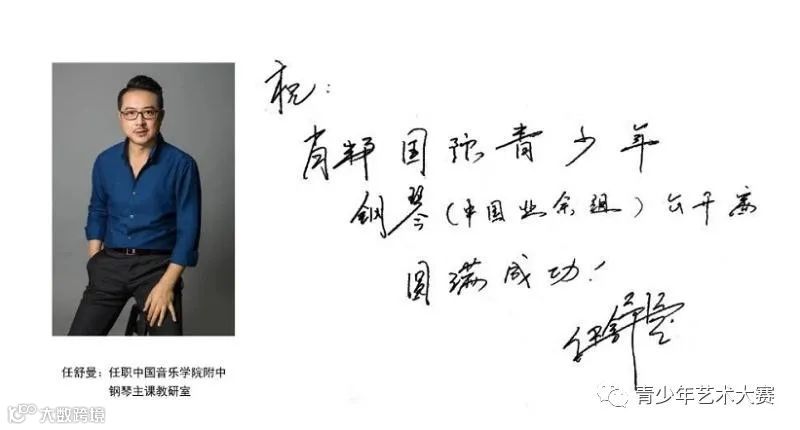 祝：
肖邦国际青少年
钢琴（中国业余组）公开赛
圆满成功！
任舒曼
任舒曼：任职中国音乐学院附中
钢琴主课教研室
青少年艺术大赛
大数跨境